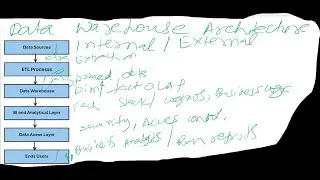 Data Warehouse Architecture
Data Sources
Internal / External
Data Extraction
ETL Processes
Transformed data
Data Warehouse
Dim, fact OLAP
BI and Analytical Layer
Tech Stack / cognos, Business
security, Access control
Data Acess Layer
Business Analysis / Run reports
Ends Users